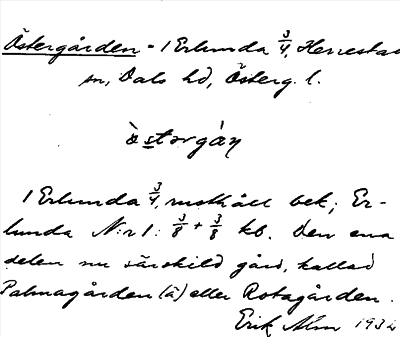 Östergården - 1 Erlunda 3/4, Herrestad
sn, Dals hd, Österg. l.
òstərgán
1 Erlunda 3/4, rusthåll bek; Er-
lunda N:r 1: 3/8 + 3/8 kb. Den ena
delen nu särskild gård, kallad
Palmagården (à) eller Rotagården.
Erik Alm 1932